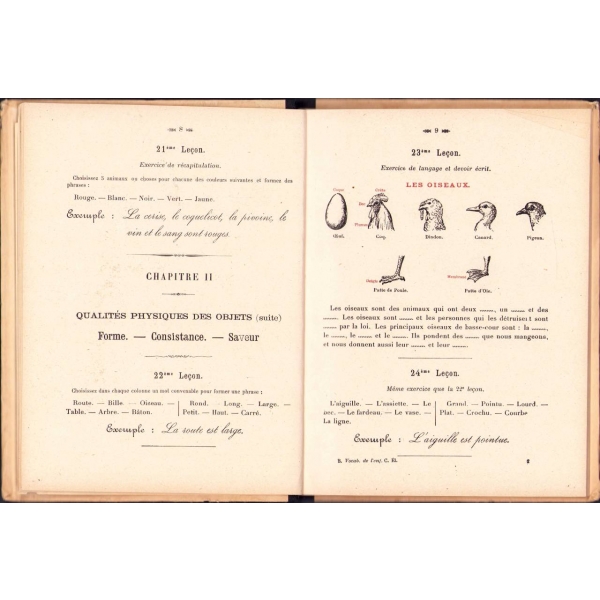 8
21ème Leçon.
Exercice de récapitulation.
Choisissez 5 animaux ou choses pour chacune des couleurs suivantes et formez des
phrases :
Rouge. — Blanc. — Noir. — Vert. — Jaune.
Exemple : La cerise, le coquelicot, la pivoine, le
vin et le sang sont rouges.
CHAPITRE II
QUALITÉS PHYSIQUES DES OBJETS (suite)
Forme. — Consistance. — Saveur
22ème Leçon.
Choisissez dans chaque colonne un mot convenable pour former une phrase :
Route. — Bille. — Oiseau. —
Table. — Arbre. — Bâton.
Rond. — Long. — Large. —
Petit. — Haut. — Carré.
Exemple : La route est large.
9
23ème Leçon.
Exercice de langage et devoir écrit.
LES OISEAUX.
Crête
Bec
Plumes
Œuf. Coq. Dindon. Canard. Pigeon.
Doigts
Membrane
Patte de Poule. Patte d'Oie.
Les oiseaux sont des animaux qui ont deux ........, un ........ et des
........ Les oiseaux sont ........ et les personnes qui les détruisent sont
........ par la loi. Les principaux oiseaux de basse-cour sont : la ........,
le ........, le ........ et le ........ Ils pondent des ........ que nous mangeons,
et nous donnent aussi leur ........ et leur ........
24ème Leçon.
Même exercice que la 22e leçon.
L'aiguille. — L'assiette. — Le
bec. — Le fardeau. — Le vase. —
La ligne.
Grand. — Pointu. — Lourd. —
Plat. — Crochu. — Courbe
Exemple : L'aiguille est pointue.
R. Vocab. de l'enf. C. El.